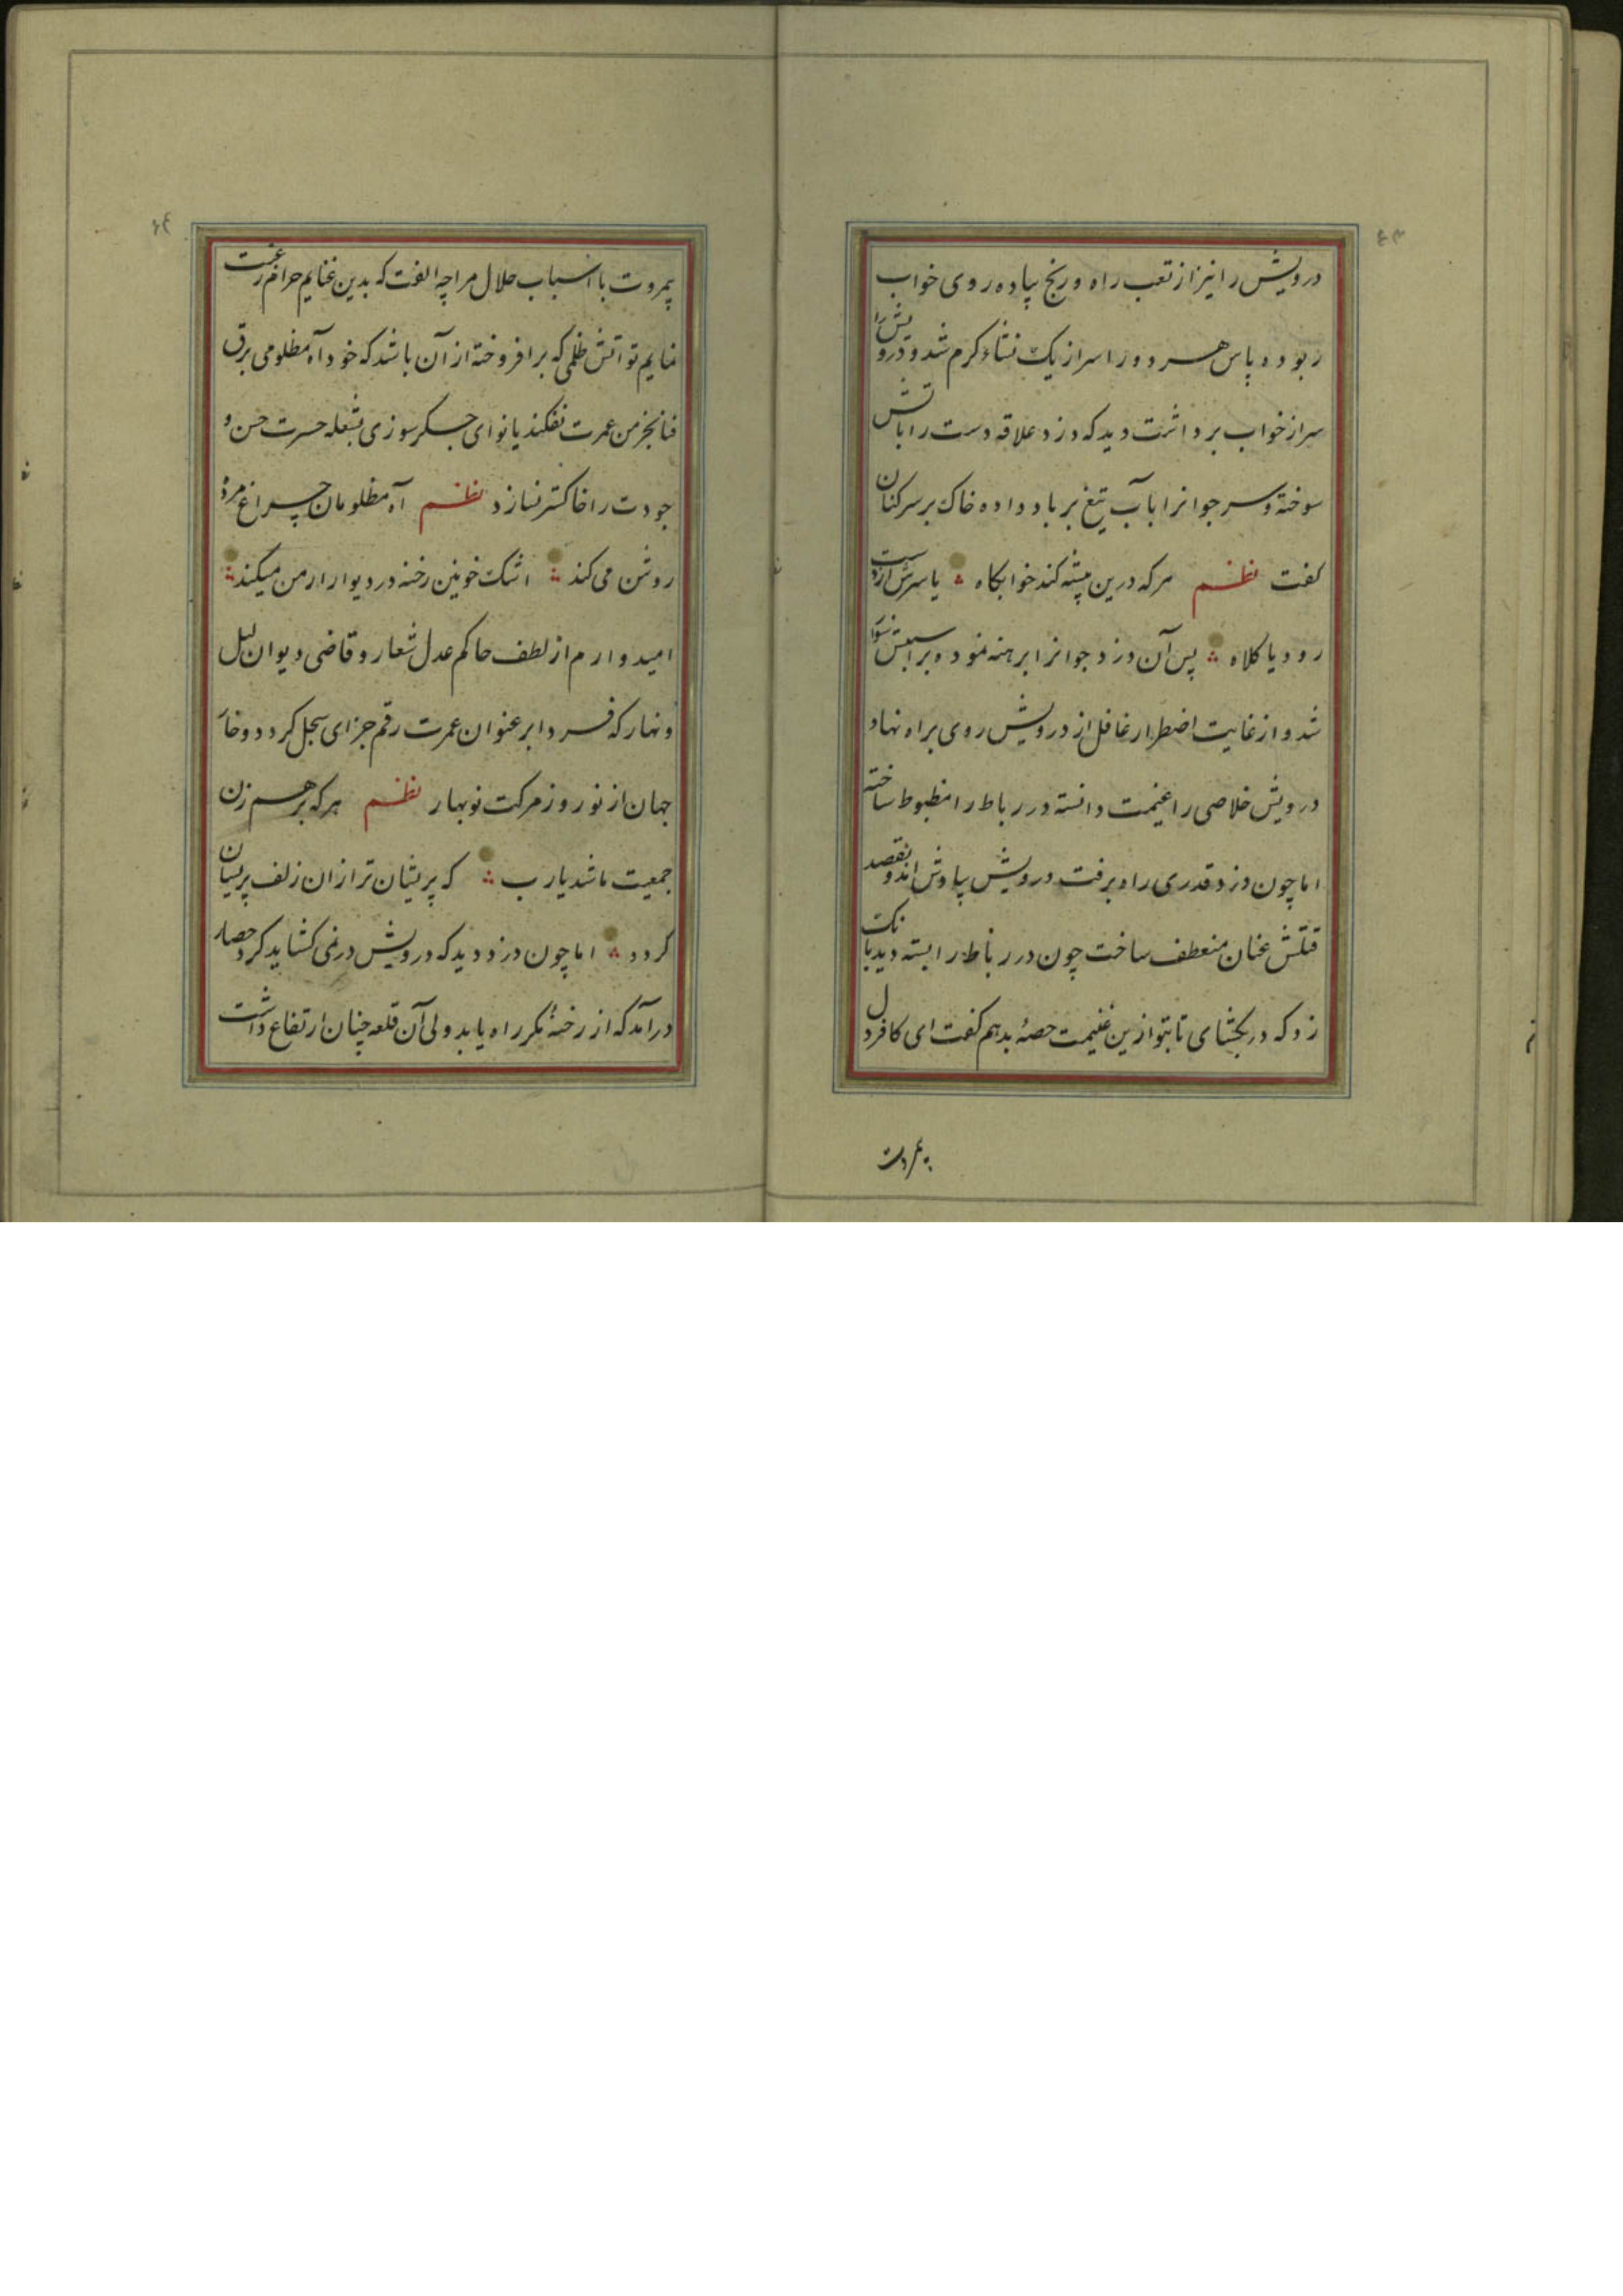 ٤٣
درویش را نیز از تعب راه و رنج پیاده روی خواب
ربوده پاس هر دو را سر از یک نشاء کرم شد و درویش را
سر از خواب برداشت دید که دزد علاقه دست را باتش
سوخته و سر جوانرا بآب تیغ بر باد داده خاک بر سر کنان
کفت نظم هر که درین پشته کند خوابگاه یا سرش از دست
رود یا کلاه پس آن دزد جوانرا برهنه نموده بر اسبش سوار
شد و از غایت اضطرار غافل از درویش روی براه نهاد
درویش خلاصی را غنیمت دانسته در رباط را مظبوط ساخته
اما چون دزد قدری راه برفت درویش بیادش اندو بقصد
قتلش عنان منعطف ساخت چون در رباط را بسته دید بانک
زد که در بگشای تا بتو ازین غنیمت حصهٔ بدهم کفت ای کافر دل
بمروت
٤٤
بمروت با اسباب حلال مرا چه الفت که بدین غنایم حرام رغبت
نمایم تو اتش ظلمی که برافروخته از آن باشد که خود آه مظلومی برق
فنا بخرمن عمرت نفکند یا نوای جسکر سوزی بشعله حسرت حسن و
جودت را خاکستر نسازد نظم آه مظلومان چراغ مرده
روشن می کند اشک خونین رخنه در دیوار ارمن میکند
امیدوارم از لطف حاکم عدل شعار و قاضی دیوان لیل
و نهار که فردا بر عنوان عمرت رقم جزای سجل کردد و خار
جهان از نوروز مرکت نوبهار نظم هر که برهم زن
جمعیت ما شد یارب که پریشان تر از ان زلف پریشان
کردد اما چون دزد دید که درویش در نمی کشاید کرد حصار
درآمد که از رخنهٔ مکر راه یابد ولی آن قلعه چنان ارتفاع داشت